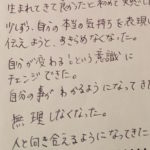 生まれてきて良かったと初めて実感し
少しずつ、自分の本当の気持ちを表現
伝えようと、あきらめなくなった。
自分が変わるという意識に
チェンジできた。
自分の事がわかるようになってき
無理しなくなった。
人と向き合えるようになってきた